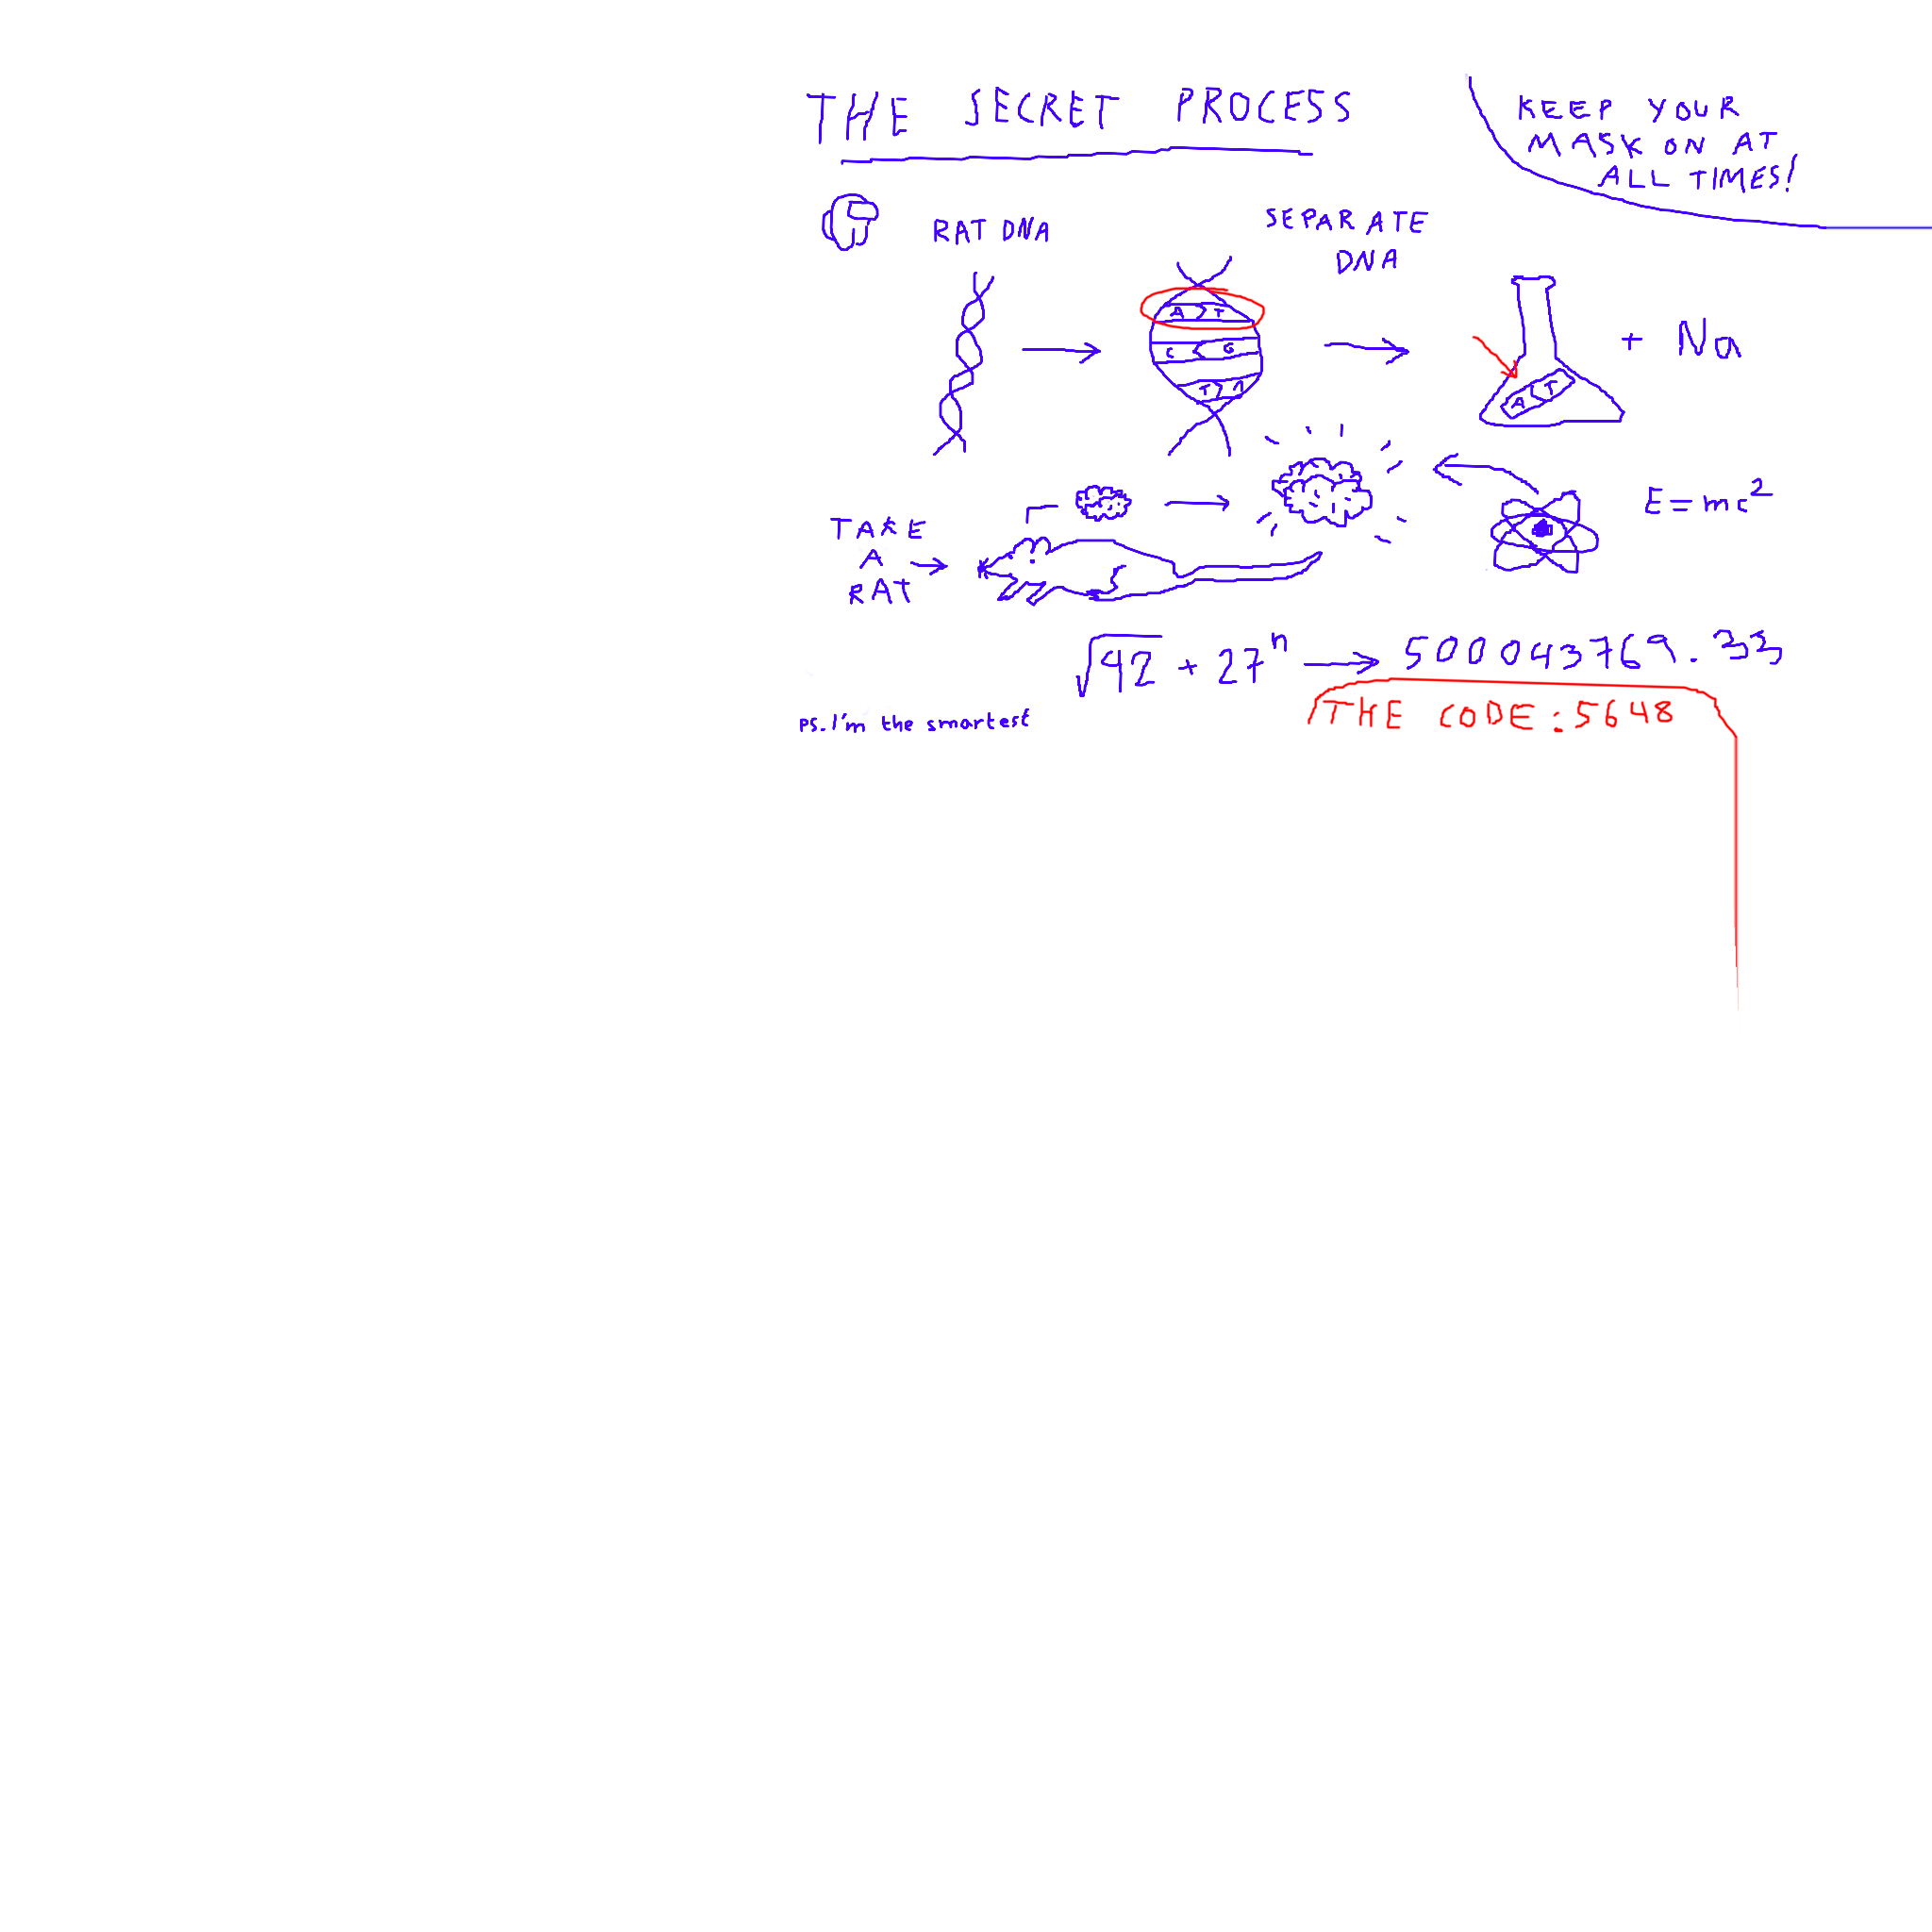 THE SECRET PROCESS
KEEP YOUR
MASK ON AT
ALL TIMES!
RAT DNA
SEPARATE
DNA
A T
C G
T A
A T
+ Na
E=mc²
TAKE
A
RAT
√42 + 27ⁿ → 500043769.33
THE CODE: 5648
PS. I'm the smartest